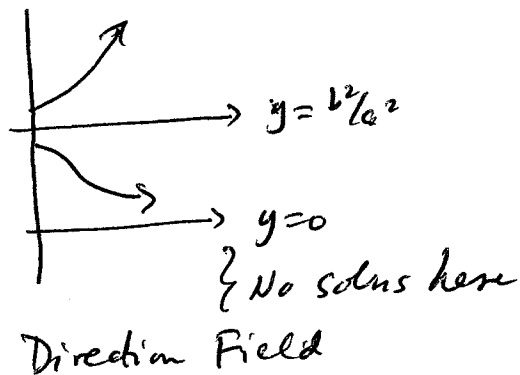 y = b²/a²
y=0
} No solns here
Direction Field